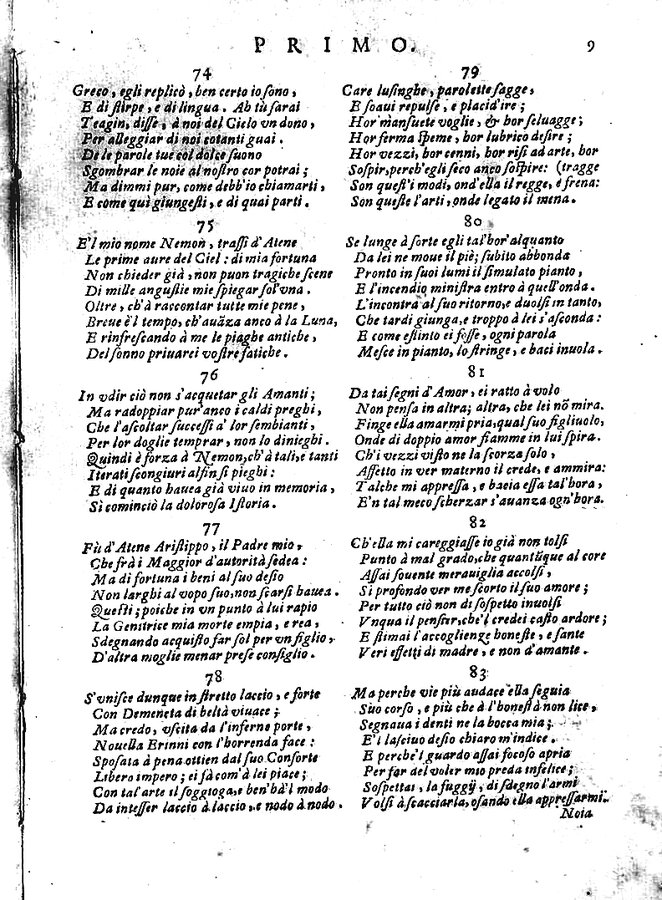 PRIMO.
9
74
Greco, egli replicò, ben certo io sono,
E di stirpe, e di lingua. Ah tù sarai
Teagin, disse, à noi del Cielo vn dono,
Per alleggiar di noi cotanti guai.
De le parole tue col dolce suono
Sgombrar le noie al nostro cor potrai;
Ma dimmi pur, come debb'io chiamarti,
E come quì giungesti, e di quai parti.
75
E'l mio nome Nemon, trassi d'Atene
Le prime aure del Ciel: di mia fortuna
Non chieder già, non puon tragiche scene
Di mille angustie mie spiegar sol'vna.
Oltre, ch'à raccontar tutte mie pene,
Breue è'l tempo, ch'auāza anco à la Luna,
E rinfrescando à me le piaghe antiche,
Del sonno priuarei vostre fatiche.
76
In vdir ciò non s'acquetar gli Amanti;
Ma radoppiar pur'anco i caldi preghi,
Che l'ascoltar successi a' lor sembianti,
Per lor doglie temprar, non lo dinieghi.
Quindi è forza à Nemon, ch'à tali, e tanti
Iterati scongiuri alfin si pieghi:
E di quanto hauea già viuo in memoria,
Sì cominciò la dolorosa Istoria.
77
Fù d'Atene Aristippo, il Padre mio,
Che frà i Maggior d'autorità sedea:
Ma di fortuna i beni al suo desio
Non larghi al vopo suo, non scarsi hauea.
Questi; poiche in vn punto à lui rapio
La Genitrice mia morte empia, e rea,
Sdegnando acquisto far sol per vn figlio,
D'altra moglie menar prese consiglio.
78
S'vnisce dunque in stretto laccio, e forte
Con Demeneta di beltà viuace;
Ma credo, vscita da l'inferne porte,
Nouella Erinni con l'horrenda face:
Sposata à pena ottien dal suo Consorte
Libero impero; ei fà com'à lei piace;
Con tal'arte il soggioga, e ben hà'l modo
Da intesser laccio à laccio, e nodo à nodo.
79
Care lusinghe, parolette sagge,
E soaui repulse, e placid'ire;
Hor mansuete voglie, & hor seluagge;
Hor ferma speme, hor lubrico desire;
Hor vezzi, hor cenni, hor risi ad arte, hor
Sospir, perch'egli seco anco sospire: (tragge
Son quest'i modi, ond'ella il regge, e frena:
Son queste l'arti, onde legato il mena.
80
Se lunge à sorte egli tal'hor'alquanto
Da lei ne moue il piè; subito abbonda
Pronto in suoi lumi il simulato pianto,
E l'incendio ministra entro à quell'onda.
L'incontra al suo ritorno, e duolsi in tanto,
Che tardi giunga, e troppo à lei s'asconda:
E come estinto ei fosse, ogni parola
Mesce in pianto, lo stringe, e baci inuola.
81
Da tai segni d'Amor, ei ratto à volo
Non pensa in altra; altra, che lei nō mira.
Finge ella amarmi pria, qual suo figliuolo,
Onde di doppio amor fiamme in lui spira.
Ch'i vezzi visto ne la scorza solo,
Affetto in ver materno il crede, e ammira:
Talche mi appressa, e bacia essa tal'hora,
E'n tal meco scherzar s'auanza ogn'hora.
82
Ch'ella mi careggiasse io già non tolsi
Punto à mal grado, che quantūque al core
Assai souente merauiglia accolsi,
Si profondo ver me scorto il suo amore;
Per tutto ciò non di sospetto inuolsi
Vnqua il pensier, che'l credei casto ardore;
E stimai l'accoglienze honeste, e sante
Veri effetti di madre, e non d'amante.
83
Ma perche vie più audace ella seguia
Suo corso, e più che à l'honestà non lice,
Segnaua i denti ne la bocca mia;
E'l lasciuo desio chiaro m'indice.
E perche'l guardo assai focoso apria
Per far del voler mio preda infelice;
Sospettai, la fuggij, di sdegno l'armi
Volsi à scacciarla, osando ella appressarmi.
Noia